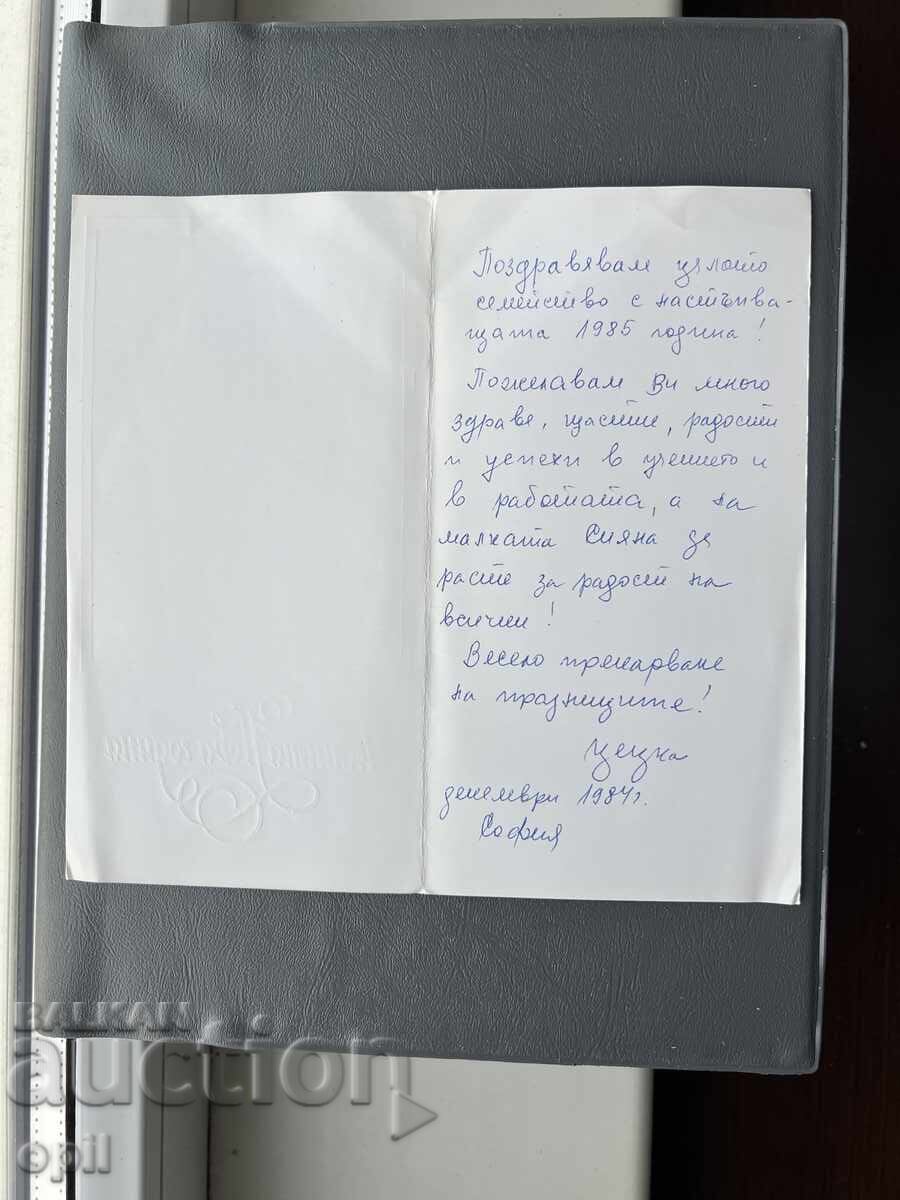 Поздравявам цялото
семейство с настъпва-
щата 1985 година!
Пожелавам Ви много
здраве, щастие, радости
и успехи в учението и
в работата, а на
малката Сияна да
расте за радост на
всички!
Весело прекарване
на празниците!
Цецка
декември 1984г.
София
Честита Нова година
BALKAN
auction
opil